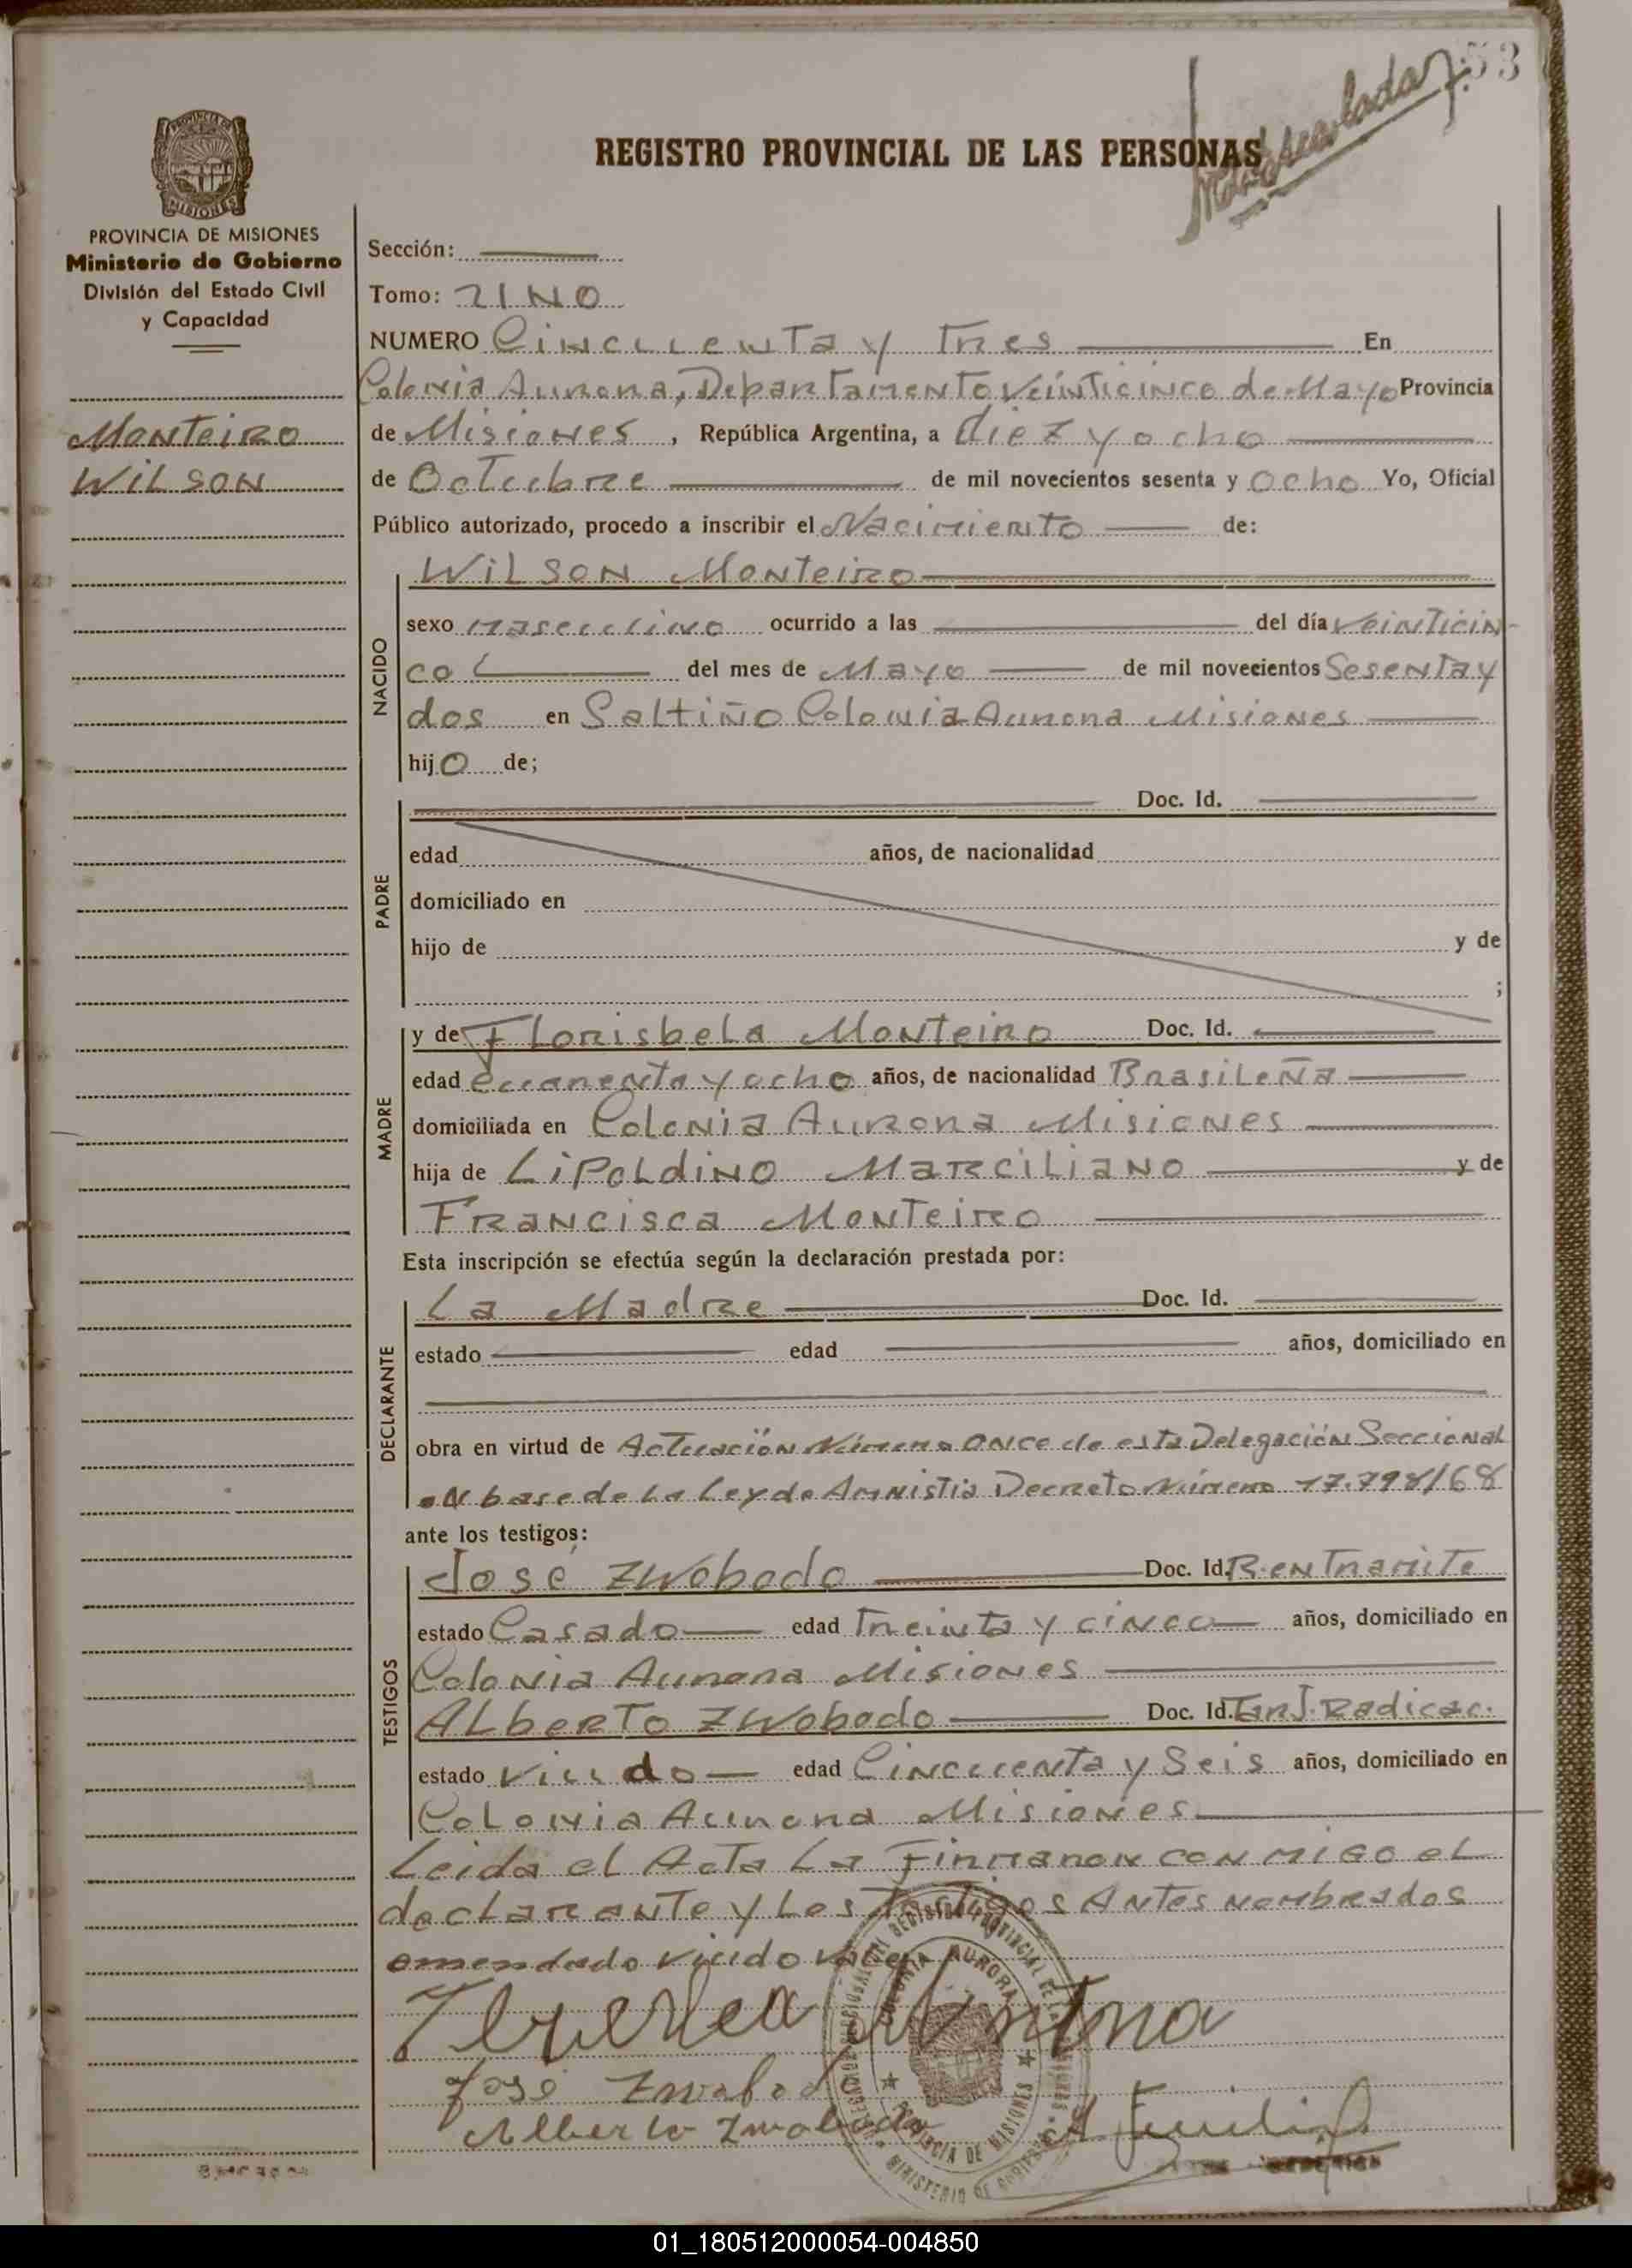 53
REGISTRO PROVINCIAL DE LAS PERSONAS
PROVINCIA DE MISIONES
Ministerio de Gobierno
División del Estado Civil
y Capacidad
Monteiro
Wilson
Sección:
Tomo: 21NO
NUMERO Cincuenta y Tres En
Colonia Aurora, Departamento Veinticinco de Mayo Provincia
de Misiones, República Argentina, a diez y ocho
de Octubre de mil novecientos sesenta y ocho Yo, Oficial
Público autorizado, procedo a inscribir el Nacimiento de:
NACIDO
Wilson Monteiro
sexo masculino ocurrido a las del día Veinticin-
co del mes de Mayo de mil novecientos Sesenta y
dos en Saltiño Colonia Aurora Misiones
hijo de;
PADRE
Doc. Id.
edad años, de nacionalidad
domiciliado en
hijo de y de
;
MADRE
y de Florisbela Monteiro Doc. Id.
edad cuarenta y ocho años, de nacionalidad Brasileña
domiciliada en Colonia Aurora Misiones
hija de Lipoldino Marciliano y de
Francisca Monteiro
Esta inscripción se efectúa según la declaración prestada por:
DECLARANTE
La Madre Doc. Id.
estado edad años, domiciliado en
obra en virtud de Actuación Número once de esta Delegación Seccional
en base de La Ley de Amnistia Decreto Número 17.798/68
ante los testigos:
TESTIGOS
José Zwobodo Doc. Id. R. en Tramite
estado Casado edad Treinta y cinco años, domiciliado en
Colonia Aurora Misiones
Alberto Zwobodo Doc. Id. Radicac.
estado Viudo edad Cincuenta y Seis años, domiciliado en
Colonia Aurora Misiones
Leida el Acta La Firmaron conmigo el
declarante y Los Testigos Antes nombrados
emendado viudo vale
José
Alberto
COLONIA AURORA
PROVINCIA DE MISIONES
MINISTERIO DE GOBIERNO
01_180512000054-004850